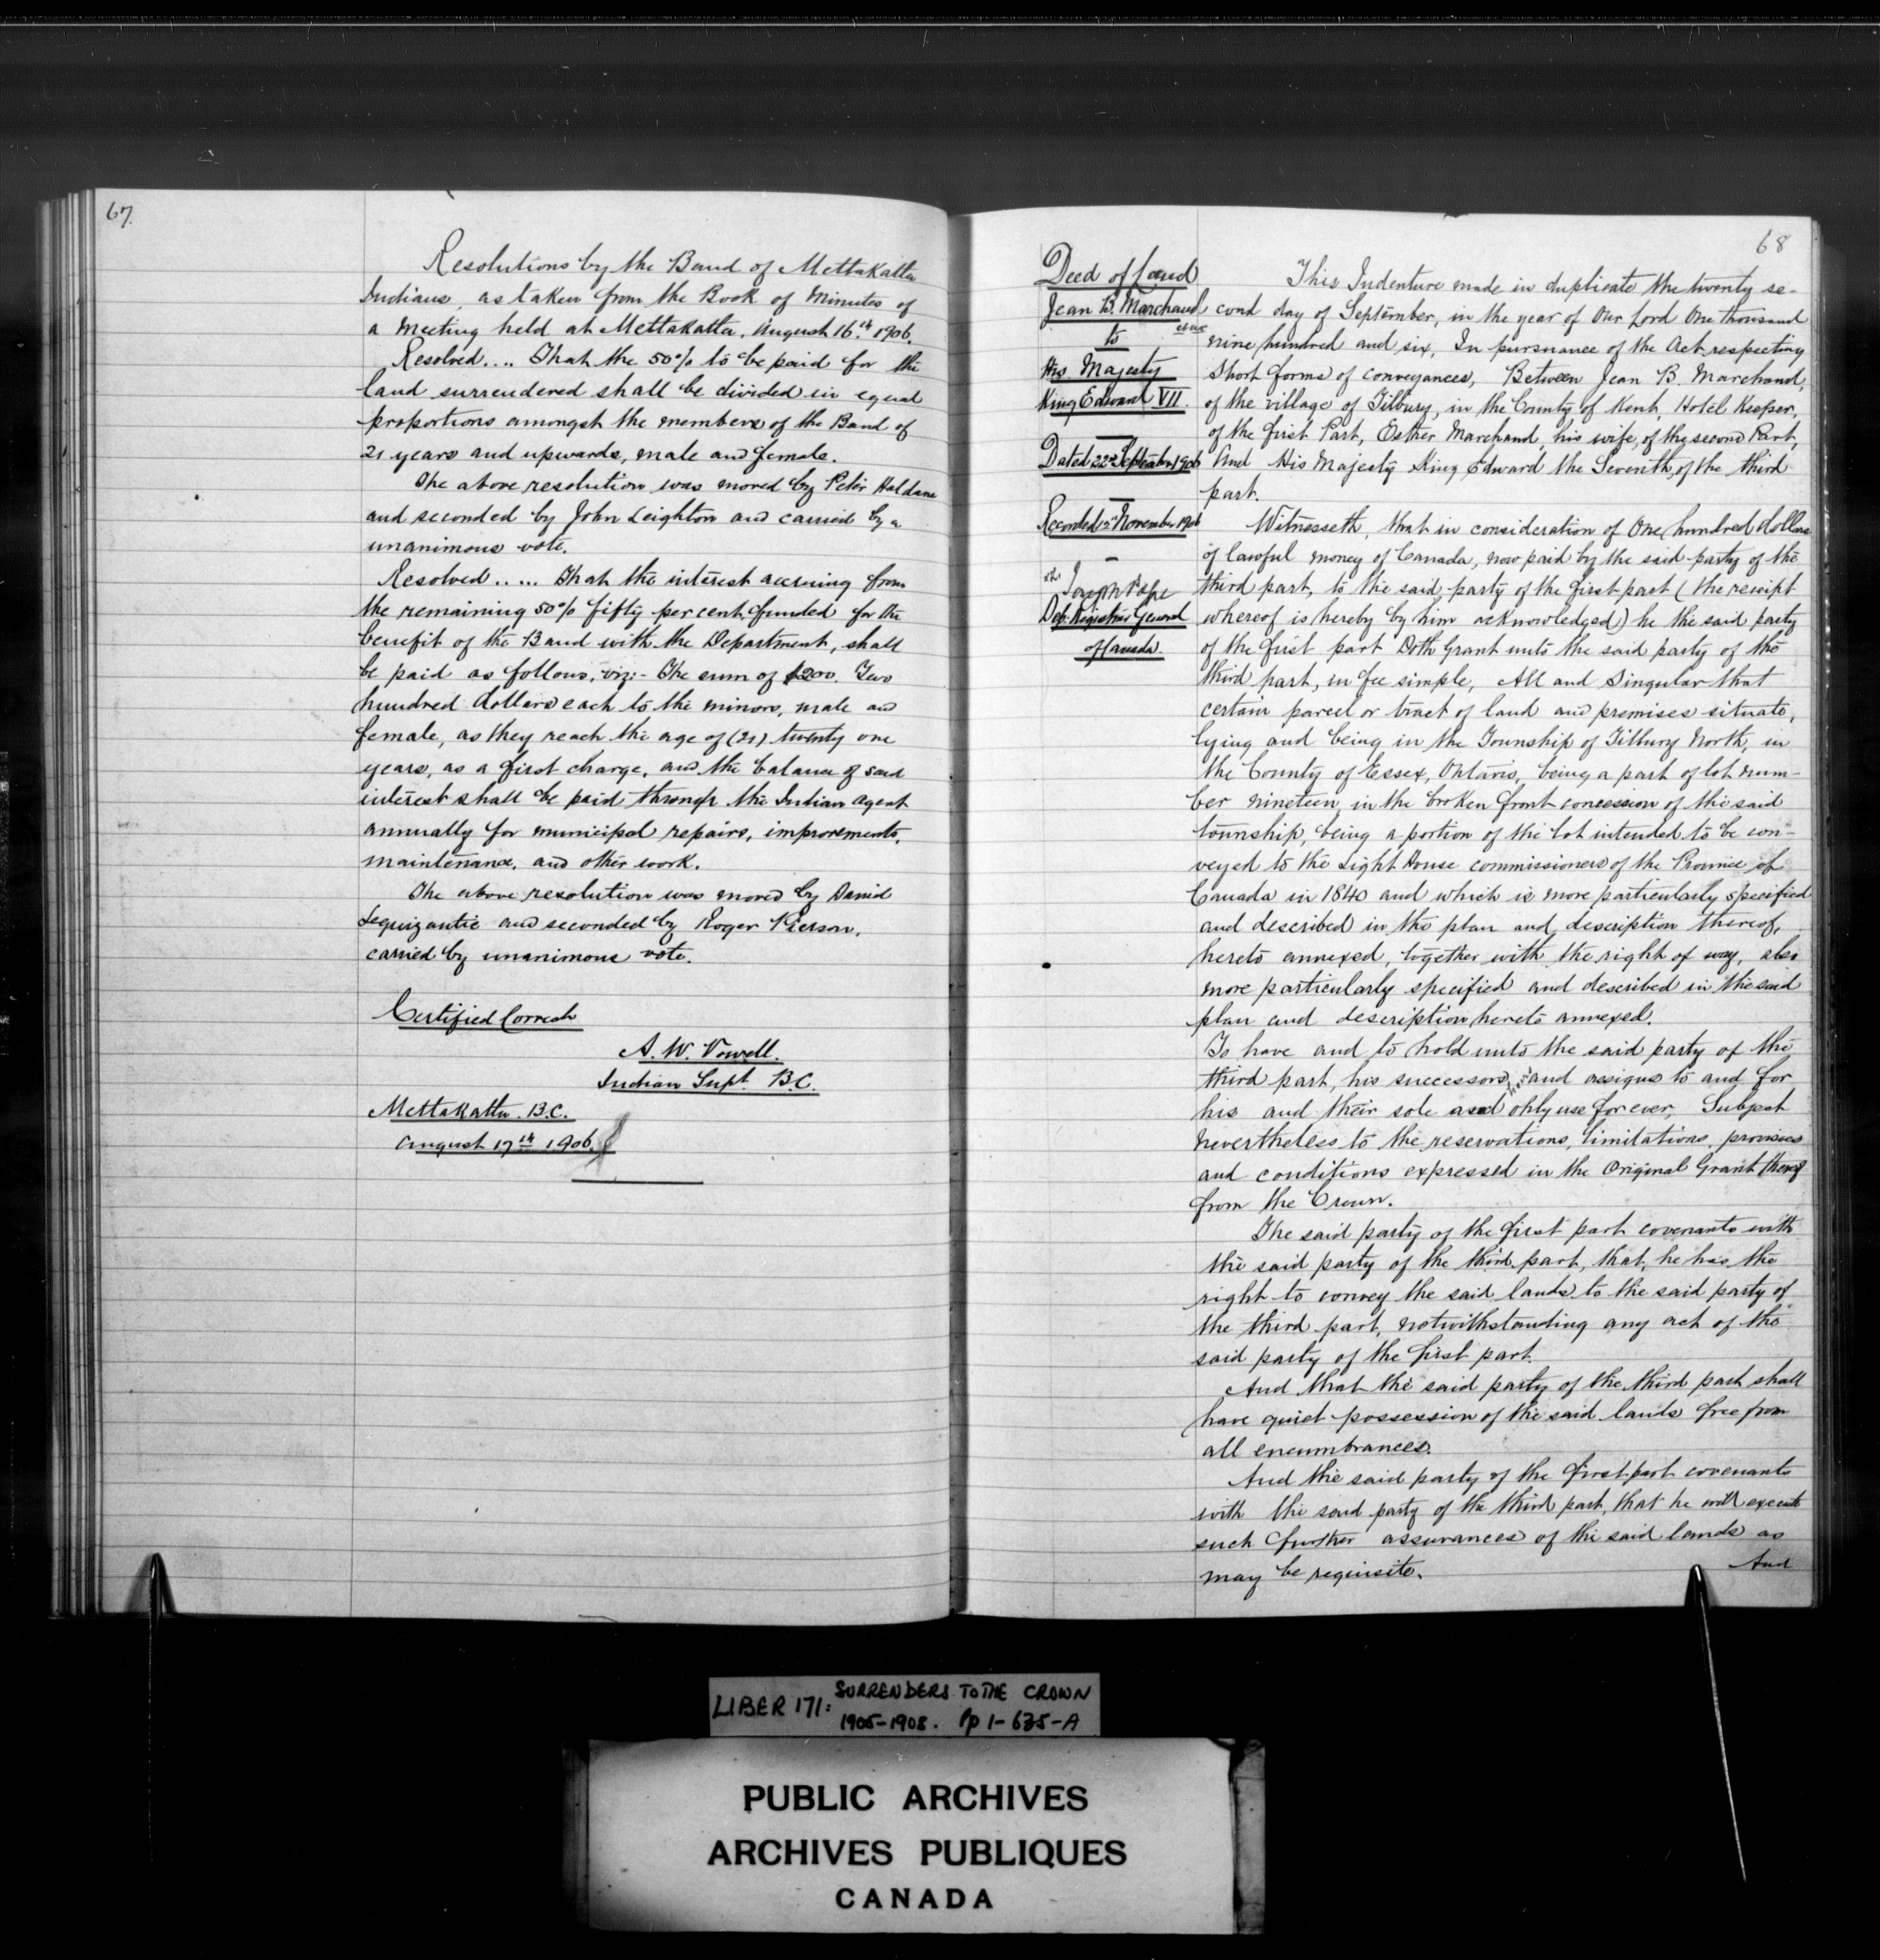 67.
Resolutions by the Band of Mettakatta
Indians, as taken from the Book of Minutes of
a meeting held at Mettakatta, August 16th 1906.
Resolved.... That the 50% to be paid for the
land surrendered shall be divided in equal
proportions amongst the members of the Band of
21 years and upwards, male and female.
The above resolution was moved by Peter Haldane
and seconded by John Leighton and carried by a
unanimous vote.
Resolved..... That the interest accruing from
the remaining 50% fifty per cent, funded for the
benefit of the Band with the Department, shall
be paid as follows, viz:- The sum of $200. Two
hundred dollars each to the minors, male and
female, as they reach the age of (21) twenty one
years, as a first charge, and the balance of said
interest shall be paid through the Indian Agent
annually for municipal repairs, improvements,
maintenance, and other work.
The above resolution was moved by Daniel
and seconded by Roger Pierson,
carried by unanimous vote.
Certified Correct
A. W. Vowell.
Indian Supt. B.C.
Mettakatta. B.C.
August 17th 1906.
68
Deed of Land
Jean B. Marchand
et ux
to
His Majesty
King Edward VII.
Dated 22nd September 1906
Recorded 2nd November 1906
Joseph Pope
Dep. Registrar General
of Canada.
This Indenture made in duplicate the twenty se-
cond day of September, in the year of Our Lord One thousand
nine hundred and six, In pursuance of the Act respecting
Short forms of conveyances, Between Jean B. Marchand,
of the village of Tilbury, in the County of Kent, Hotel Keeper,
of the first Part, Esther Marchand, his wife, of the second Part,
And His Majesty King Edward the Seventh, of the third
part.
Witnesseth, that in consideration of One hundred dollars
of lawful money of Canada, now paid by the said party of the
third part, to the said party of the first part (the receipt
whereof is hereby by him acknowledged) he the said party
of the first part Doth Grant unto the said party of the
third part, in fee simple, All and Singular that
certain parcel or tract of land and premises situate,
lying and being in the Township of Tilbury North, in
the County of Essex, Ontario, being a part of lot num-
ber nineteen in the broken front concession of the said
township, being a portion of the lot intended to be con-
veyed to the Light House commissioners of the Province of
Canada in 1840 and which is more particularly specified
and described in the plan and description thereof,
hereto annexed, together with the right of way, also
more particularly specified and described in the said
plan and description hereto annexed.
To have and to hold unto the said party of the
third part, his successors and assigns to and for
his and their sole and only use for ever, Subject
nevertheless to the reservations, limitations, provisoes
and conditions expressed in the Original Grant thereof
from the Crown.
The said party of the first part covenants with
the said party of the third part, that he has the
right to convey the said lands to the said party of
the third part, notwithstanding any act of the
said party of the first part.
And that the said party of the third part shall
have quiet possession of the said lands free from
all encumbrances.
And the said party of the first part covenants
with the said party of the third part, that he will execute
such further assurances of the said lands as
may be requisite.
And
LIBER 171: SURRENDERS TO THE CROWN
1905-1908. Pp 1-635-A
PUBLIC ARCHIVES
ARCHIVES PUBLIQUES
CANADA